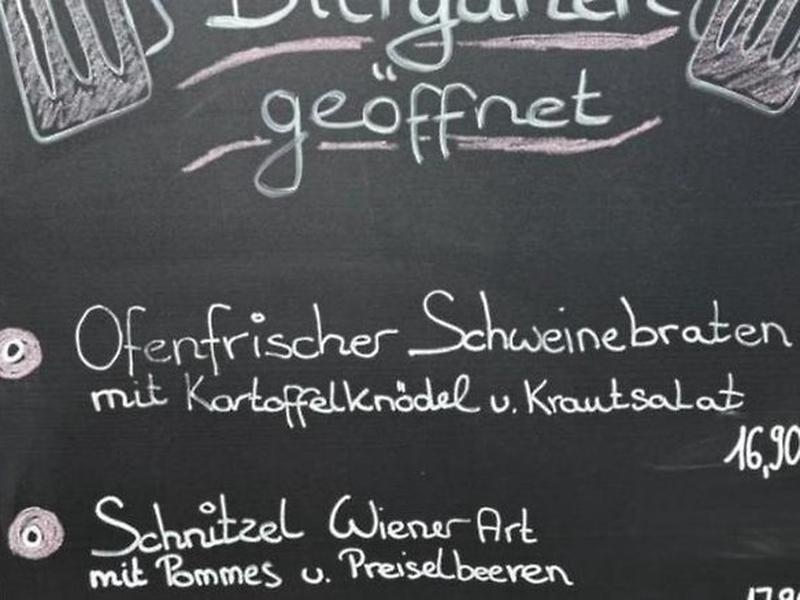 Biergarten
geöffnet
Ofenfrischer Schweinebraten
mit Kartoffelknödel u. Krautsalat
16,90
Schnitzel Wiener Art
mit Pommes u. Preiselbeeren